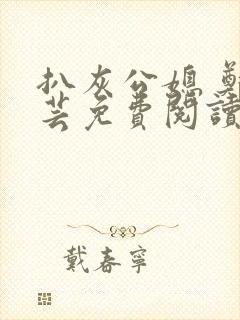 扒灰公媳 鄭
芸免費閱讀
戴春寧